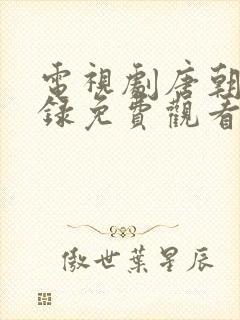 電視劇唐朝
錄免費觀看
傲世葉星辰